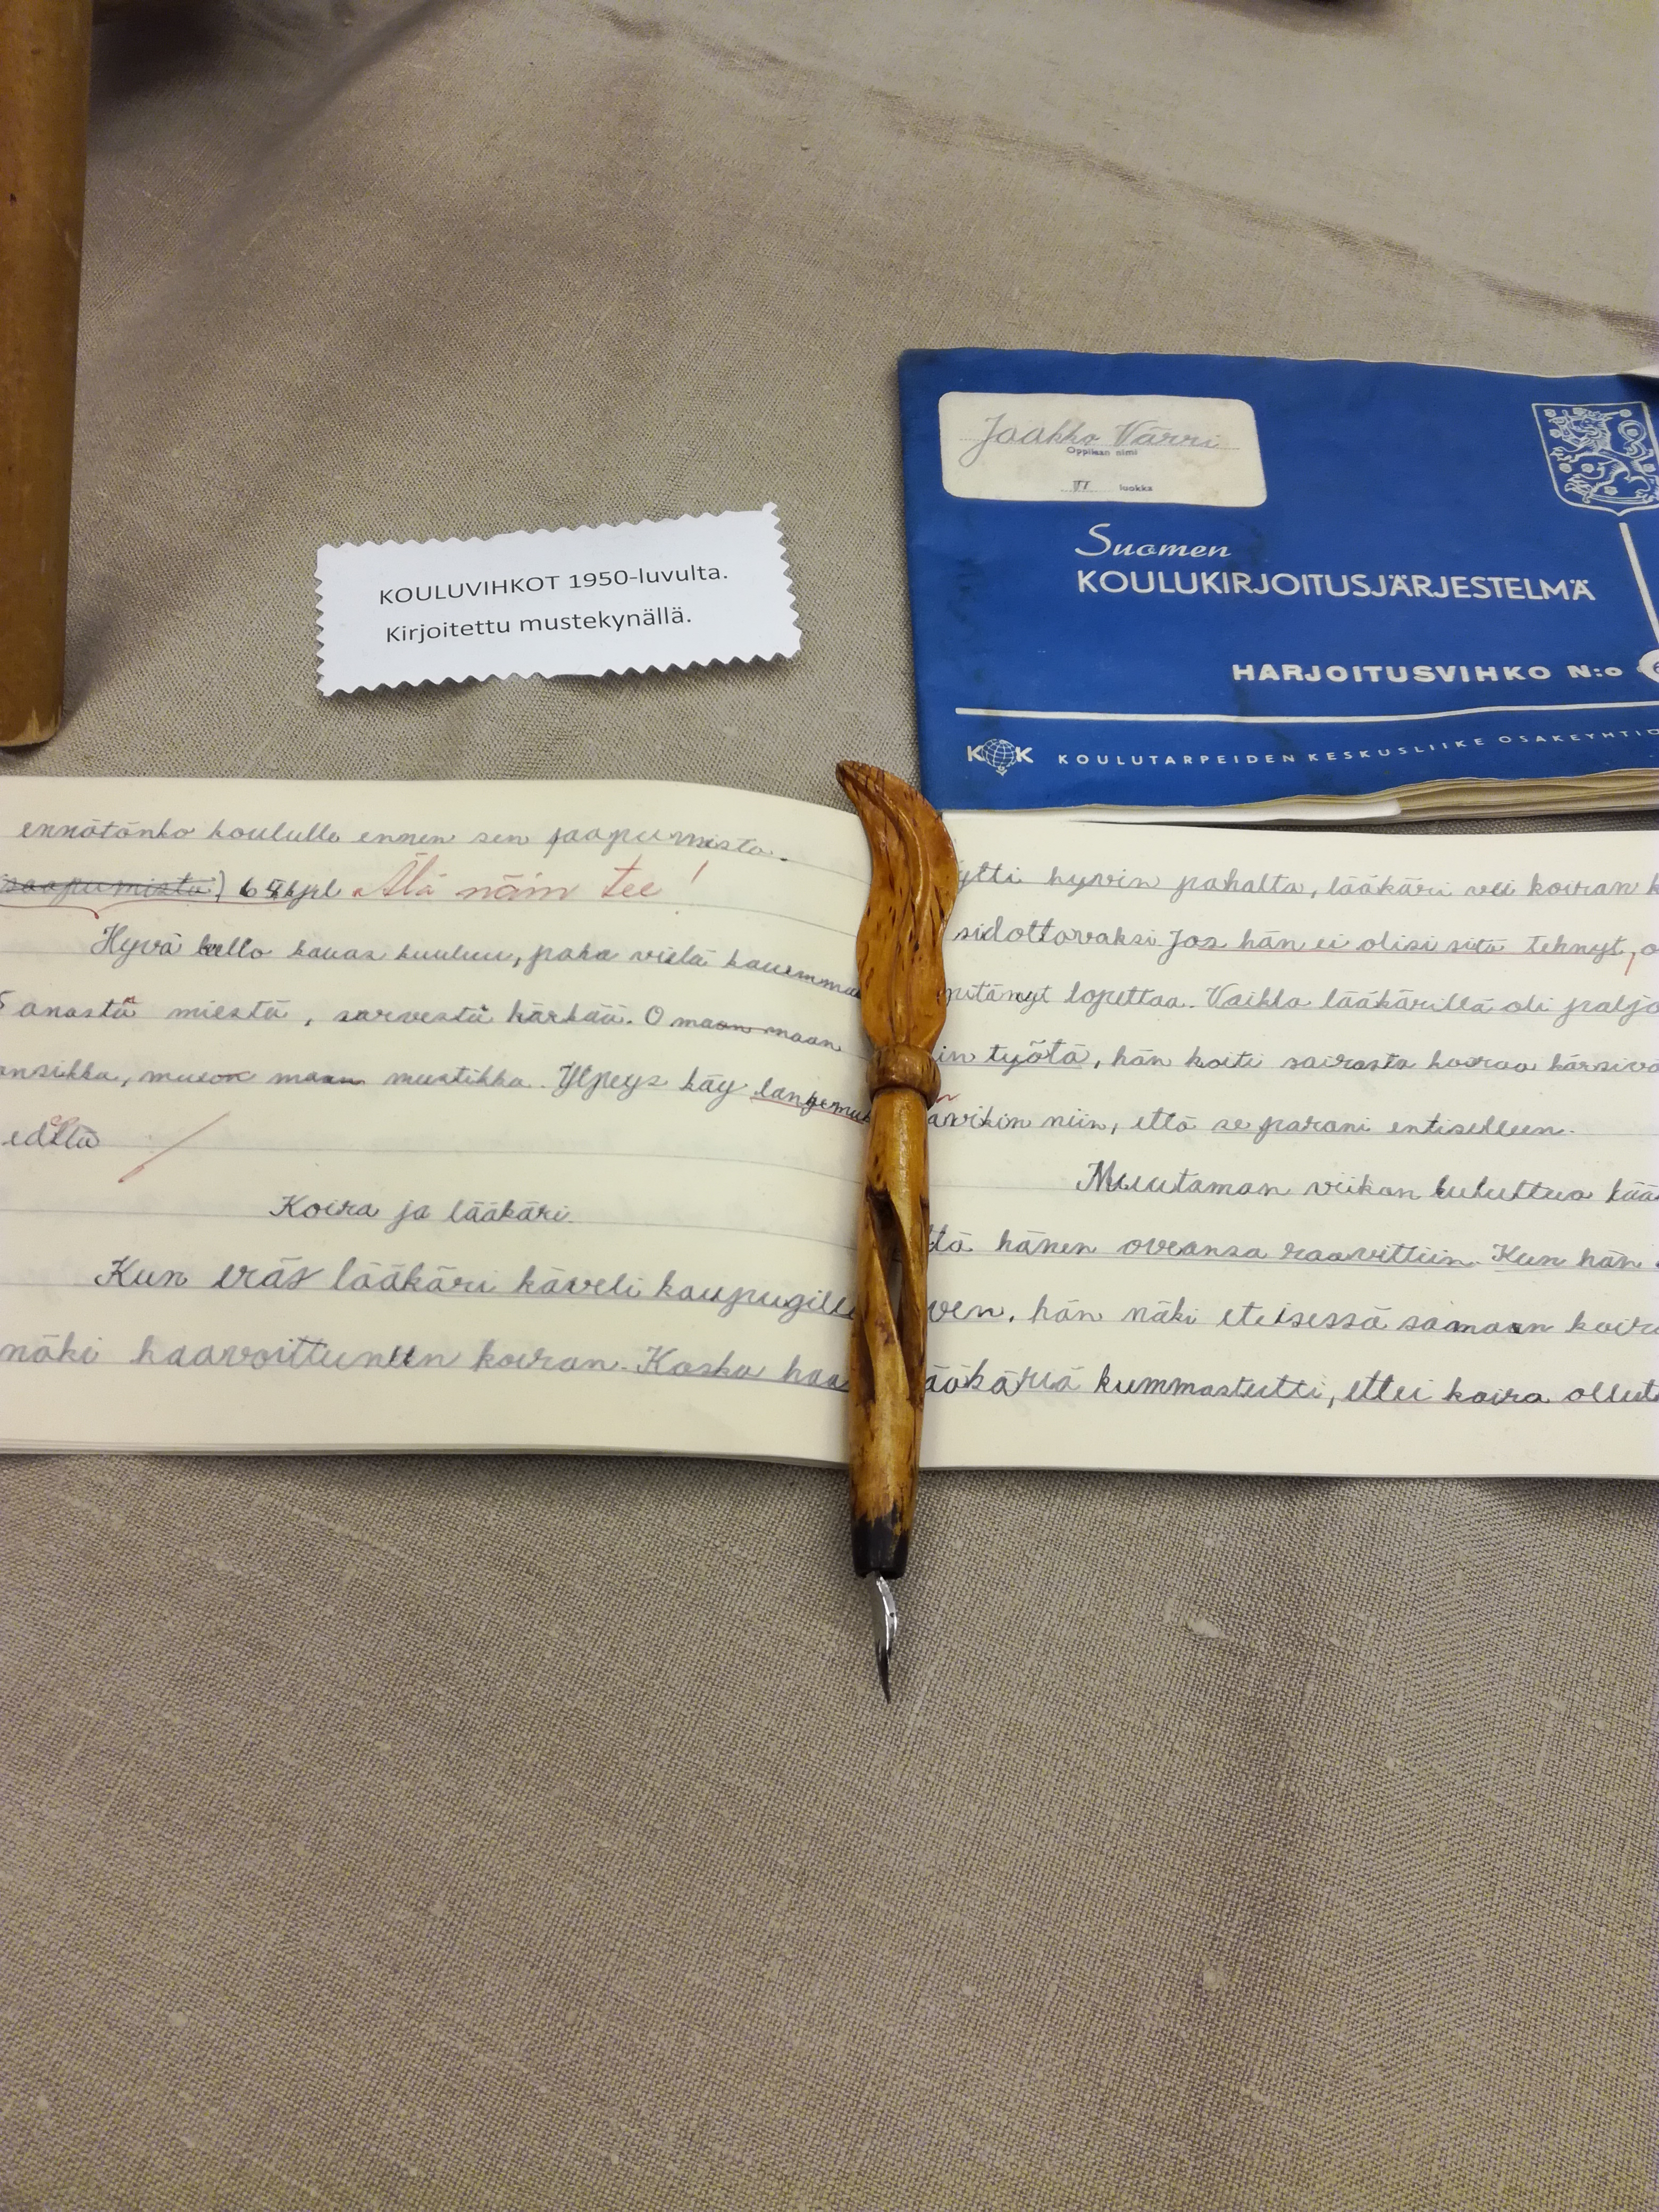 KOULUVIHKOT 1950-luvulta.
Kirjoitettu mustekynällä.
Jaakko Värri
Oppilaan nimi
VI luokka
Suomen
KOULUKIRJOITUSJÄRJESTELMÄ
HARJOITUSVIHKO N:o
KOK KOULUTARPEIDEN KESKUSLIIKE OSAKEYHTIÖ
ennätänkö koululle ennen sen saapumista.
saapumista) Älä näin tee!
Hyvä kello kauas kuuluu, paha vielä kauemma
Sanasta miestä, sarvesta härkää. O maan maan
ansikka, muun maan mustikka. Ylpeys käy lankemuk
edellä
Koira ja lääkäri.
Kun eräs lääkäri käveli kaupugille
näki haavoittuneen koiran. Koska haa
ytti hyvin pahalta, lääkäri vei koiran k
sidottavaksi Jos hän ei olisi sitä tehnyt, o
pitänyt lopettaa. Vaikka lääkärillä oli paljo
in työtä, hän hoiti sairasta koiraa kärsivä
avikin niin, että se parani entiselleen.
Muutaman viikon kuluttua lää
ttä hänen oveansa raavittiin. Kun hän
ven, hän näki eteisessä samaan koira
ääkäriä kummastutti, ettei koira ollut